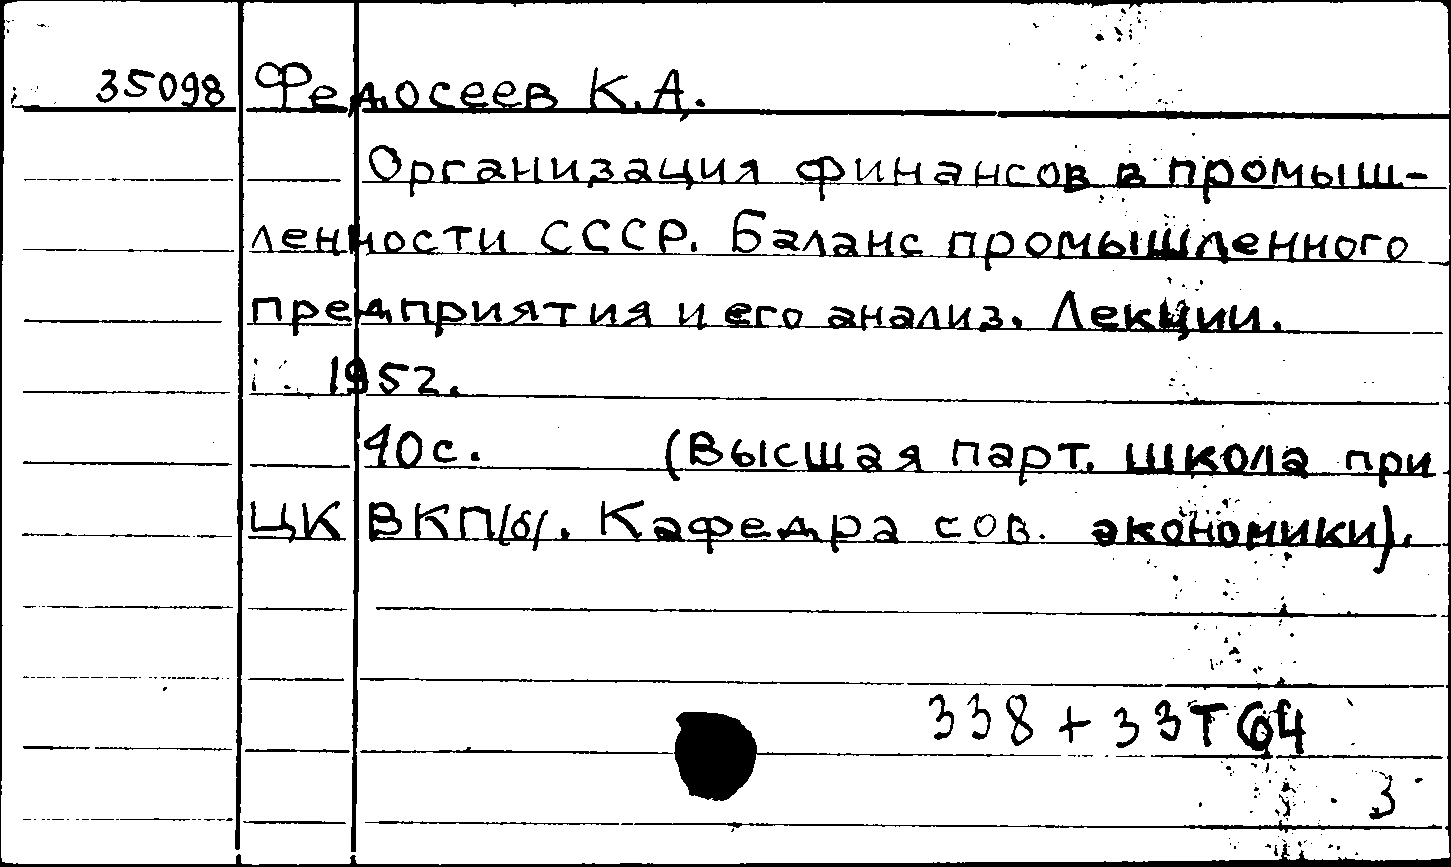 35098 Федосеев К.А.
Организация финансов в промыш-
ленности СССР. Баланс промышленного
предприятия и его анализ. Лекции.
1952.
40с. (Высшая парт. школа при
ЦК ВКП/б/. Кафедра сов. экономики).
338 + 33Т(04
3